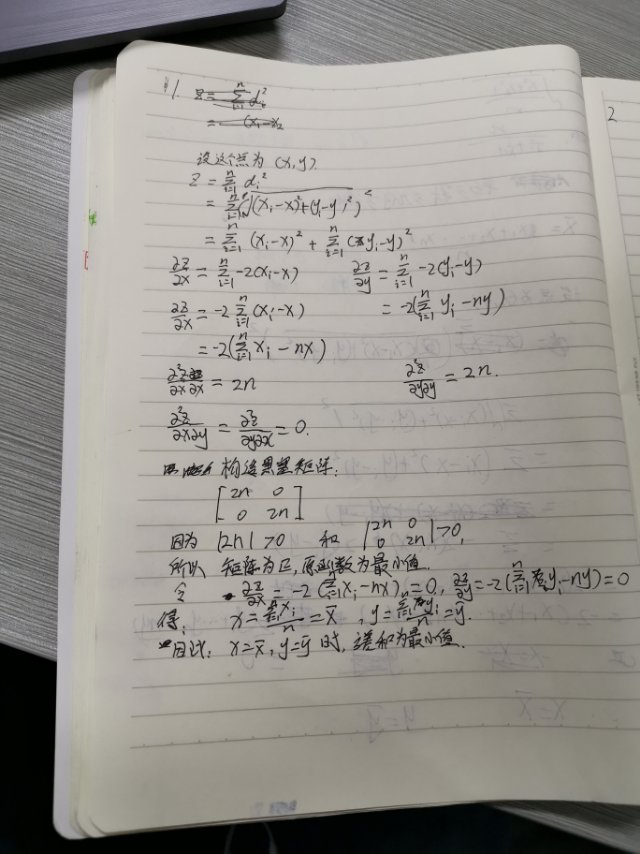 1. z = Σ_{i=1}^{n} d_i²
= (x_i - x_2
设这个点为 (x, y).
z = Σ_{i=1}^{n} d_i²
= Σ_{i=1}^{n} (√((x_i-x)²+(y_i-y)²))²
= Σ_{i=1}^{n} (x_i-x)² + Σ_{i=1}^{n} (y_i-y)²
∂z/∂x = Σ_{i=1}^{n} -2(x_i-x)   ∂z/∂y = Σ_{i=1}^{n} -2(y_i-y)
∂z/∂x = -2 Σ_{i=1}^{n} (x_i-x)   = -2(Σ_{i=1}^{n} y_i - ny)
= -2(Σ_{i=1}^{n} x_i - nx)
∂²z/∂x∂x = 2n   ∂²z/∂y∂y = 2n.
∂²z/∂x∂y = ∂²z/∂y∂x = 0.
构造黑塞矩阵:
[2n 0
0 2n]
因为 |2n| >0 和 |2n 0
0 2n| >0,
所以 矩阵为正,原函数为最小值.
令 ∂z/∂x = -2(Σ_{i=1}^{n} x_i - nx) = 0, ∂z/∂y = -2(Σ_{i=1}^{n} y_i - ny) = 0
得: x = Σ_{i=1}^{n} x_i / n = x̄, y = Σ_{i=1}^{n} y_i / n = ȳ.
因此: x = x̄, y = ȳ 时, 和为最小值.
2